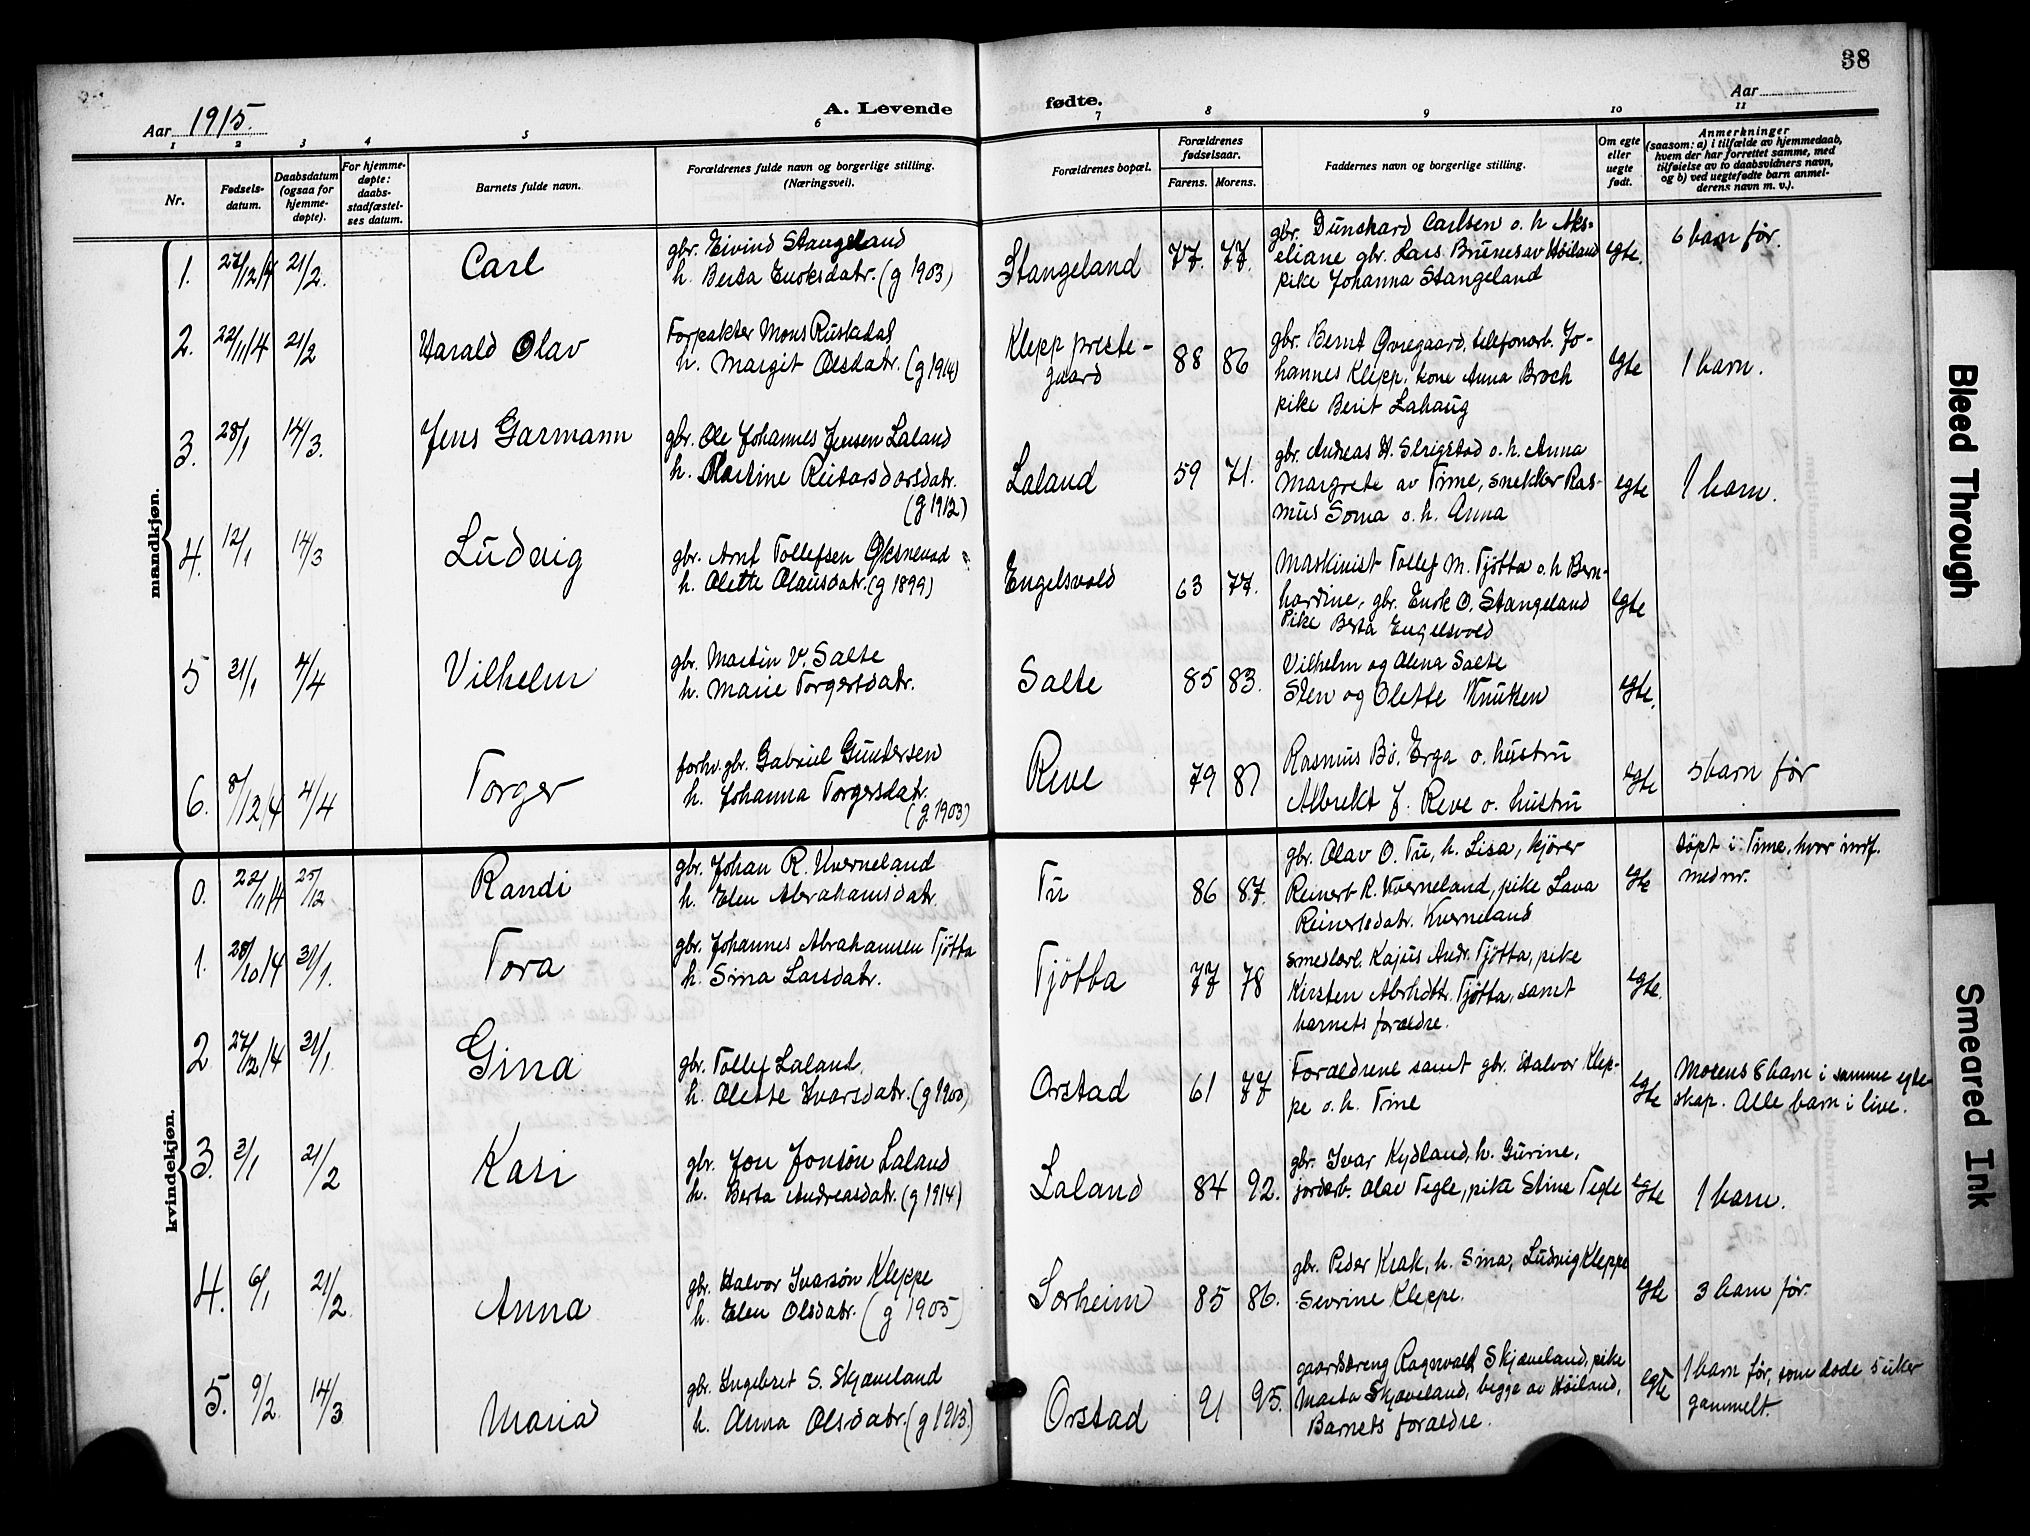 38
Aar 1915.
A. Levende fødte.
Aar
1 2 3 4 5 6 7 8 9 10 11
Nr.
Fødsels-
datum.
Daabsdatum
(ogsaa for
hjemme-
døpte).
For hjemme-
døpte:
daabs-
stadfæstel-
ses datum.
Barnets fulde navn.
Forældrenes fulde navn og borgerlige stilling.
(Næringsvei).
Forældrenes bopæl.
Forældrenes
fødselsaar.
Farens. Morens.
Faddernes navn og borgerlige stilling.
Om egte
eller
uegte
født.
Anmerkninger
(saasom: a) i tilfælde av hjemmedaab,
hvem der har forrettet samme, med
tilføielse av to daabsvidners navn,
og b) ved uegtefødte barn anmel-
derens navn m. v.).
mandkjøn.
1. 27/12 14 21/2. Carl
gbr. Eivind Stangeland
h. Berta Enoksdatr. (g 1903)
Stangeland 77. 77.
gbr. Dunskard Carlsen o. h Aks-
eliane gbr. Lars Brunes av Høiland
pike Johanna Stangeland
egte. 6 barn før.
2. 22/11 14 21/2 Harald Olav
Forpakter Mons Rustadal
h. Margit Olsdatr. (g 1914)
Klepp preste-
gaard
88 86
gbr. Bernt Øvregaard, telefonarb. Jo-
hannes Klepp. kone Anna Broch
pike Berit Lahaug
egte 1 barn.
3. 28/1 14/3. Jens Garmann
gbr. Ole Johannes Jensen Laland
h. Martine Reitarsdorsdatr.
(g 1912)
Laland 59 71.
gbr. Andreas H. Skrigstad o. h. Anna
Margrete av Time, snekker Ras-
mus Soma o. h. Anna
egte 1 barn.
4. 12/1 14/3 Ludvig
gbr. Arnt Tollefsen Øksnevad
h. Olette Olausdatr. (g 1899)
Engelsvold 63 77.
Maskinist Tollef M. Tjøtta o. h Bern-
hardine, gbr. Enok O. Stangeland
Pike Berta Engelsvold
egte
5 31/1 4/4 Vilhelm
gbr. Martin V. Salte
h. Marie Torgersdatr.
Salte 85 83.
Vilhelm og Alena Salte
Sten og Olette Knutsen
egte.
6. 8/12 14 4/4 Torger
forhv. gbr. Gabriel Gundersen
h. Johanna Torgersdatr.
(g 1903)
Reve 79 81
Rasmus Bö. Erga o. hustru
Albrekt J. Reve o. hustru
egte 5 barn før
kvindekjøn.
0. 22/11 14 25/12 Randi
gbr. Johan R. Kverneland
h. Elen Abrahamsdatr.
Tu 86 87.
gbr. Olav O. Tu, h. Lisa, kjører
Reinert R. Kverneland, pike Lava
Reinertsdatr. Kverneland
egte
døpt i Time, hvor indf.
med nr.
1. 28/10 14 31/1. Tora
gbr. Johannes Abrahamsen Tjøtta
h. Sina Larsdatr.
Tjøtta 77 78
smedlærl. Kajus Andr. Tjøtta, pike
Kirsten Abrhdtr. Tjøtta, samt
barnets foraldre.
egte.
2 27/12 14 31/1. Gina
gbr. Tollef Laland
h. Olette Ivarsdatr. (g 1900)
Orstad 61 77
Foraldrene samt gbr. Halvor Klep-
pe o. h. Trine
egte
Morens 8 barn i samme egte-
skap. Alle barn i live.
3. 3/1 21/2 Kari
gbr. Jon Jonsøn Laland
h. Berta Andreasdatr. (g 1914)
Laland 84 92.
gbr. Ivar Kydland, h. Gurine,
jordarb. Olav Tegle, pike Stine Tegle
egte 1 barn.
4. 6/1 21/2. Anna
gbr. Halvor Ivarsøn Kleppe
h. Elen Olsdatr. (g 1905)
Sørheim 85 86.
gbr. Peder Krak, h. Sina, Ludvig Kleppe
Sevrine Kleppe.
egte 3 barn før.
5. 9/2. 14/3 Maria
gbr. Ingebret S. Skjæveland
h. Anna Olsdatr. (g 1913.)
Orstad 91 95.
gaardsdreng Ragnvald Skjæveland, pike
Marta Skjæveland, begge av Høiland,
Barnets foraldre.
egte
1 barn før, som døde 5 uker
gammelt.
Bleed Through
Smeared Ink